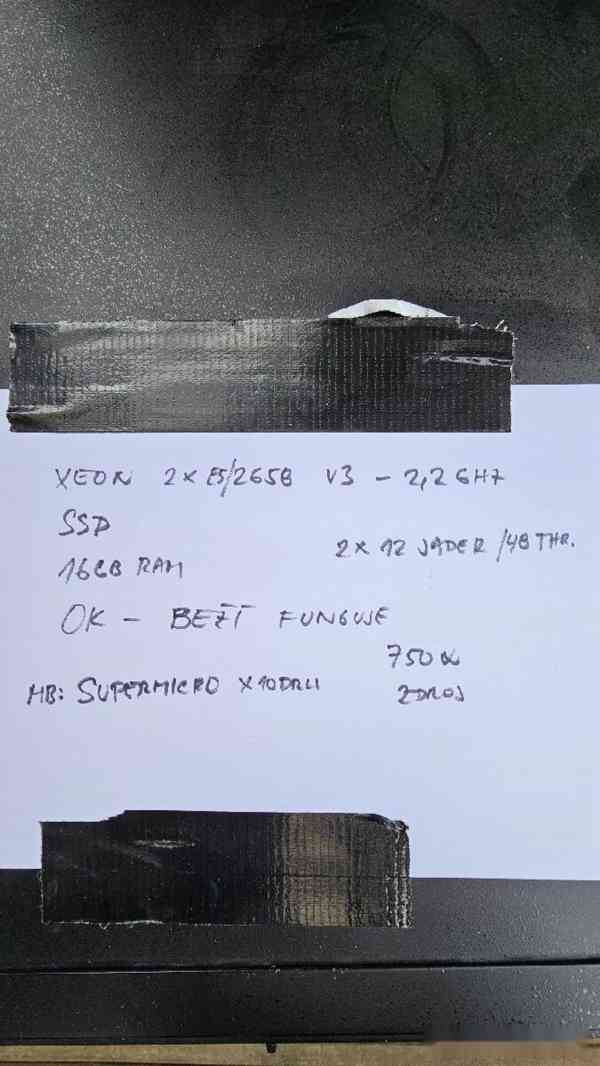 XEON 2x E5/2658 V3 - 2,2 GHZ
SSD
2x 12 JADER /48 THR.
16GB RAM
OK - BEŽÍ FUNGUJE
750W
MB: SUPERMICRO X10DRLI
ZDROJ